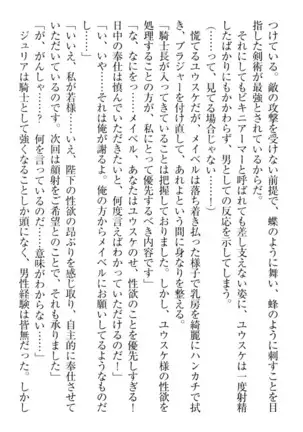 つけている。敵の攻撃を受けない前提で、蝶のように舞い、蜂のように刺すことを目
指した剣術が最強とされているからだ。
それにしてもビキニアーマーと呼ばれても差し支えない姿に、ユウスケは一度射精
したばかりにもかかわらず、男としての反応を示してしまう。
(……って、見てる場合じゃない!)
慌てるユウスケだが、メイベルは落ち着き払った様子で乳房を綺麗にハンカチで拭
き、ブラジャーを付け直して、あれよという間に身なりを整える。
「騎士長が入ってきていることは把握しておりました。しかし、ユウスケ様の性欲を
処理することの方が、私にとって優先すべき内容です」
「な、なにをっ……メイベル、あなたはユウスケのことを優先しすぎる!
日中の奉仕は慎んでいただきたいと、何度言えばわかっていただけるのだ!」
「い、いや……それは俺が謝るよ。俺の方からメイベルにお願いしてるようなもんだ」
「いえ、私が若様……いえ、陛下の性欲の昂ぶりを感じ取り、自主的に奉仕させて
いただいているのです。次回は顔射をご希望とのことで、それも承りました」
「が、がんしゃ……?　何を言っているのだ……意味がわからない……」
ジュリアは騎士として強くなることしか頭になく、男性経験は皆無だった。しかし